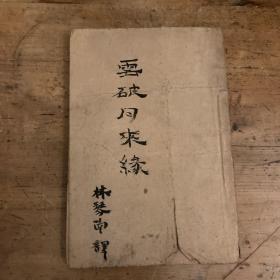 雲破月來緣
林琴南譯